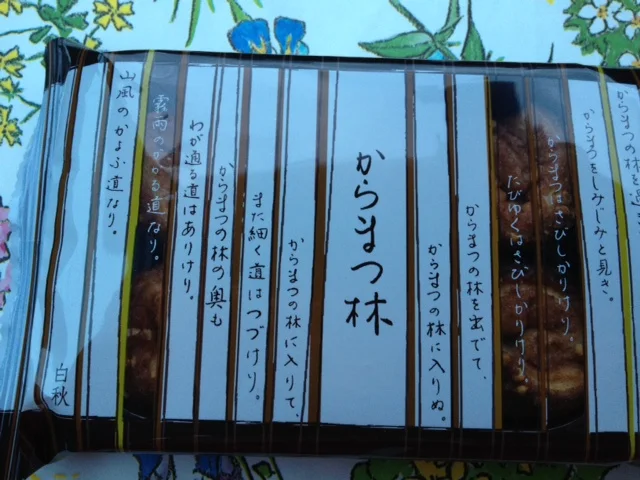 からまつの林を過ぎて、
からまつをしみじみと見き。
からまつはさびしかりけり。
たびゆくはさびしかりけり。
からまつの林を出でて、
からまつの林に入りぬ。
からまつ林
からまつの林に入りて、
また細く道はつづけり。
からまつの林の奥も
わが通る道はありけり。
霧雨のかかる道なり。
山風のかよふ道なり。
白秋